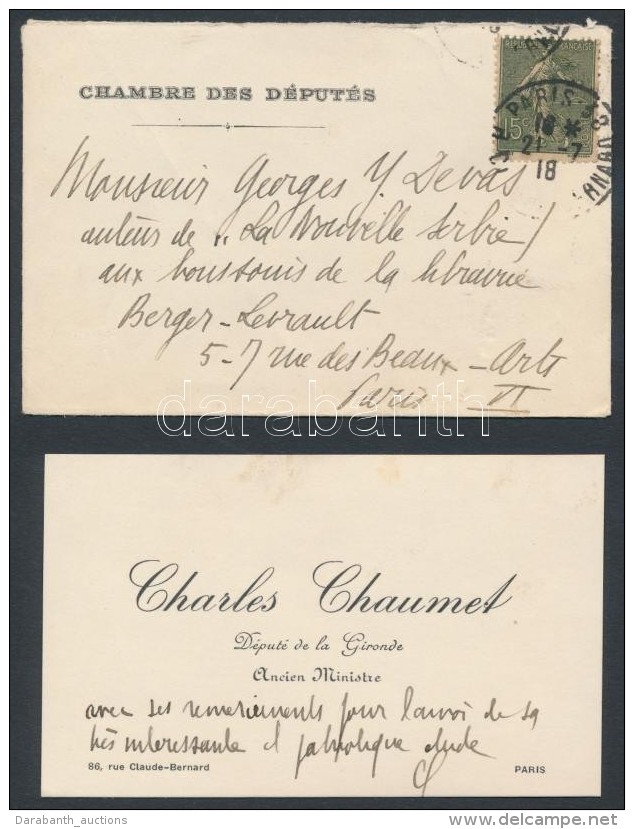 CHAMBRE DES DÉPUTÉS
REPUBLIQUE FRANÇAISE
15c
PARIS
18 *
21 - 7
18
Monsieur Georges Y. Devas
auteur de „La Nouvelle Serbie"
aux bons soins de la librairie
Berger-Levrault
5-7 rue des Beaux-Arts
Paris VI
darabanth
Charles Chaumet
Député de la Gironde
Ancien Ministre
avec ses remerciements pour l'envoi de sa
très intéressante et patriotique étude
86, rue Claude-Bernard
PARIS
Darabanth_auctions
www.delcampe.net